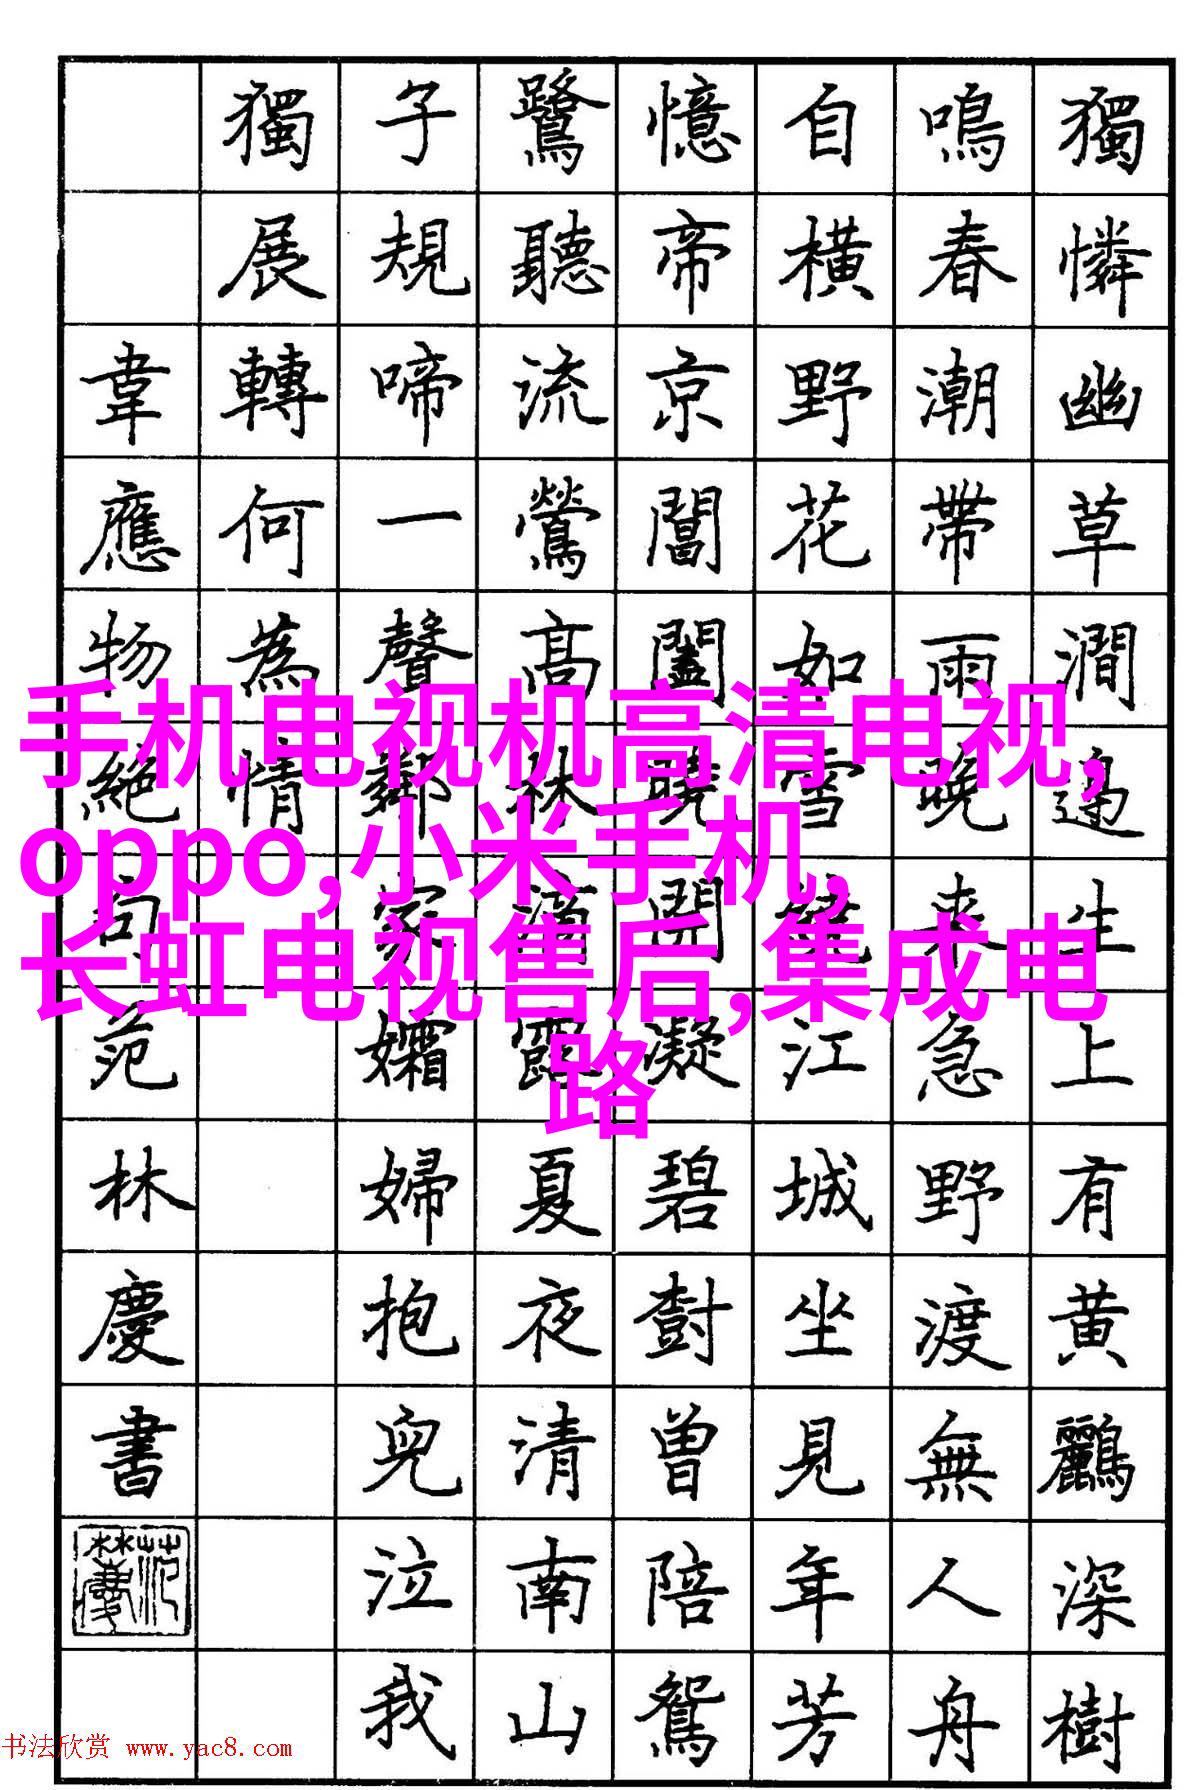 獨憐幽草澗邊生上有黄鸝深樹
鳴春潮帶雨晚來急野渡無人舟
自橫野花如雪繞江城坐見年芳
憶帝京閶闔曉開凝碧樹曾陪鴛
鷺聽流鶯高林滴露夏夜清南山
子規啼一聲鄰家孀婦抱兒泣我
獨展轉何為情
韋應物絕句范林慶書
范林慶
手机电视机高清电视,
oppo,小米手机,
长虹电视售后,集成电
路
书法欣赏 www.yac8.com